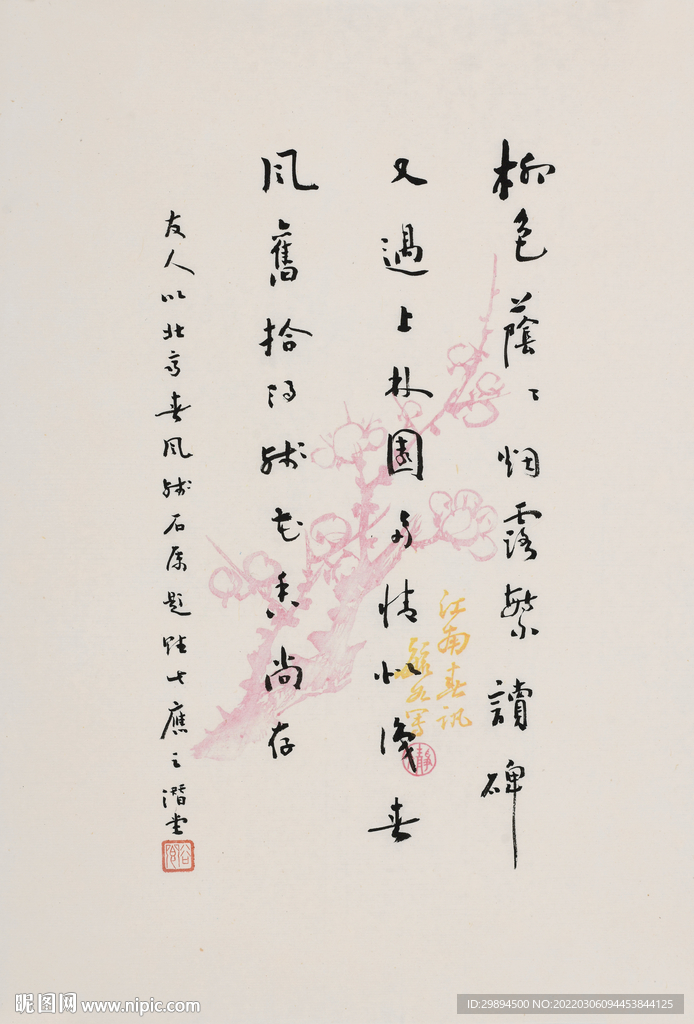 柳色蔭〻烟露繁讀碑
又過上林園多情似識春
風舊拾得殘花香尚存
友人以北齊春風殘石屬題賦此應之潛堂
江南春訊
寫
靜
昵图网 www.nipic.com
ID:29894500 NO:20220306094453844125